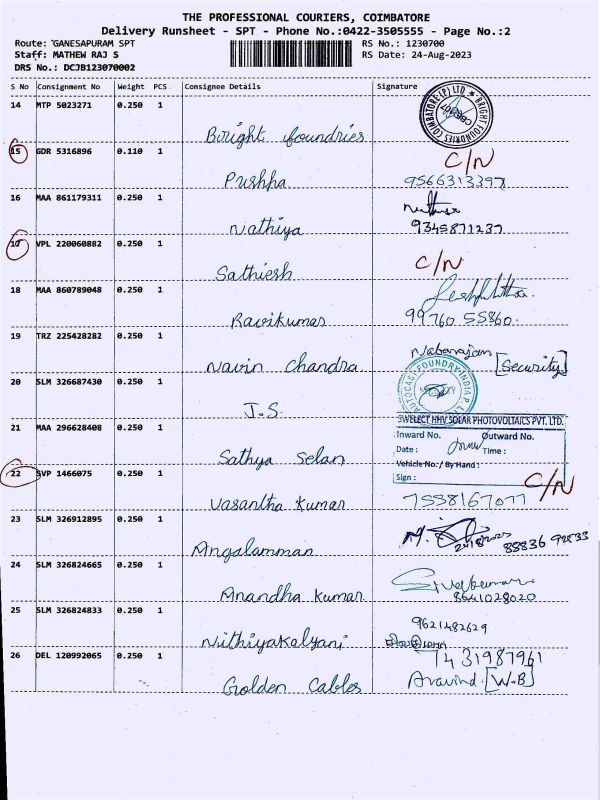 THE PROFESSIONAL COURIERS, COIMBATORE
Delivery Runsheet - SPT - Phone No.:0422-3505555 - Page No.:2
Route: GANESAPURAM SPT
Staff: MATHEW RAJ S
DRS No.: DCJB123070002
RS No.: 1230700
RS Date: 24-Aug-2023
S No Consignment No Weight PCS Consignee Details Signature
14 MTP 5023271 0.250 1
Bright foundries
BRIGHT FOUNDRIES COIMBATORE (P) LTD
15 GDR 5316896 0.110 1 C/N
Pushpa 9566313397
16 MAA 861179311 0.250 1
Nathiya 9345871237
17 VPL 220060882 0.250 1
Sathiesh C/N
18 MAA 860789048 0.250 1
Ravikumar 99760 55860
19 TRZ 225428282 0.250 1
Navin Chandra Nabarajan [Security]
20 SLM 326687430 0.250 1
J.S. AUTOCAST FOUNDRY INDIA P. L
21 MAA 296628408 0.250 1
SWELECT HHV SOLAR PHOTOVOLTAICS PVT. LTD.
Inward No. Outward No.
Date : Time :
Vehicle No. / By Hand :
Sign :
Sathya Selan
22 SVP 1466075 0.250 1 C/N
Vasantha Kumar 7558167077
23 SLM 326912895 0.250 1
Angalamman 24/8/2023 88836 92833
24 SLM 326824665 0.250 1
Anandha Kumar 8641028020
25 SLM 326824833 0.250 1 9621482629
Nithiyakalyani
26 DEL 120992065 0.250 1 7431987961
Golden Cables Aravind. [W.B]